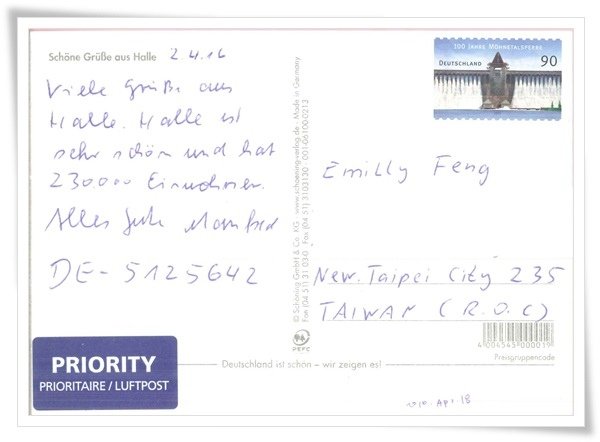 Schöne Grüße aus Halle 2.4.16
Viele Grüße aus
Halle. Halle ist
sehr schön und hat
230000 Einwohner.
Alles Gute Manfred
DE-5125642
© Schöning GmbH & Co. KG · www.schoening-verlag.de · Made in Germany
Fon (04 51) 31 03-0 · Fax (04 51) 3103130 · 001-06100-0213
PEFC
100 JAHRE MÖHNETALSPERRE
DEUTSCHLAND 90
Emilly Feng
New Taipei City 235
TAIWAN (R.O.C)
4 004545 000019
Preisgruppencode
PRIORITY
PRIORITAIRE / LUFTPOST
Deutschland ist schön – wir zeigen es!
Apr. 18